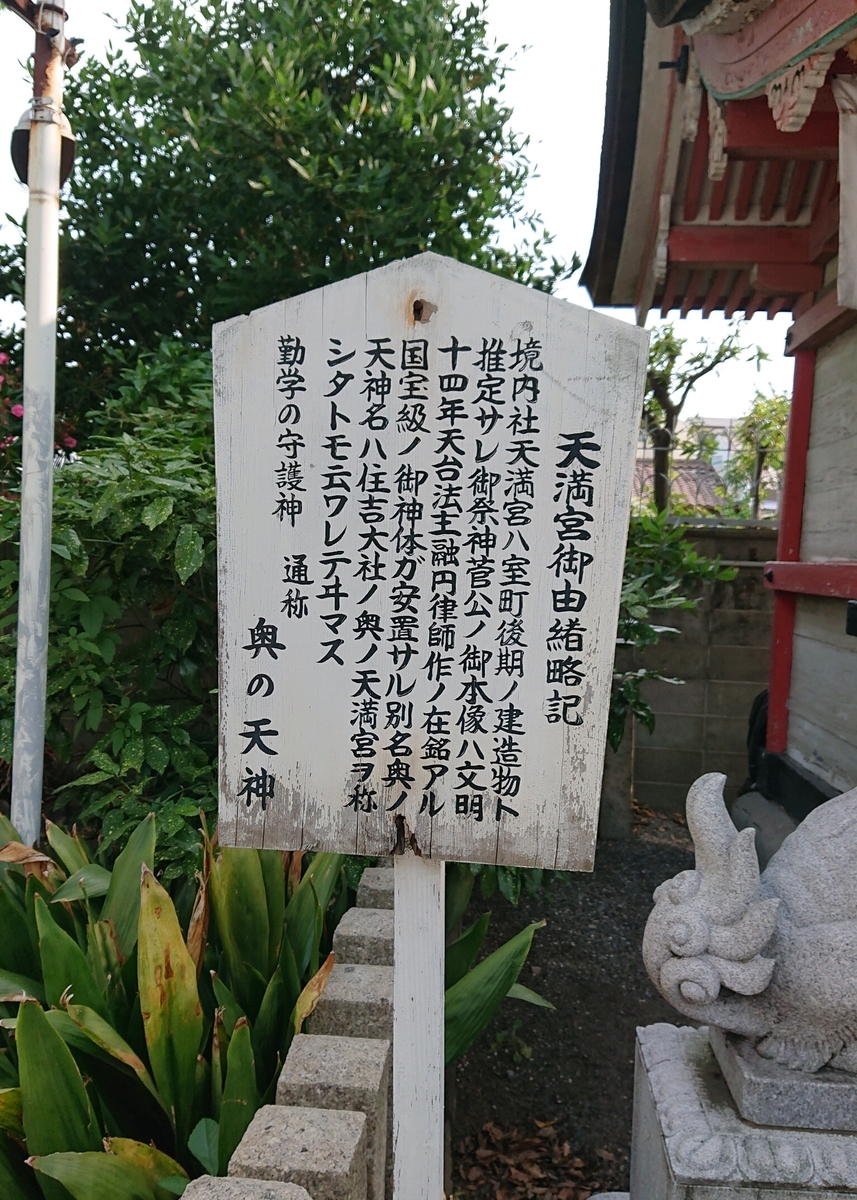 天満宮御由緒略記
境内社天満宮ハ室町後期ノ建造物ト
推定サレ御祭神菅公ノ御木像ハ文明
十四年天台法主融円律師作ノ在銘アル
国宝級ノ御神体ガ安置サル別名奥ノ
天神名ハ住吉大社ノ奥ノ天満宮ヲ称
シタトモ云ワレテヰマス
勤学の守護神 通称
奥の天神